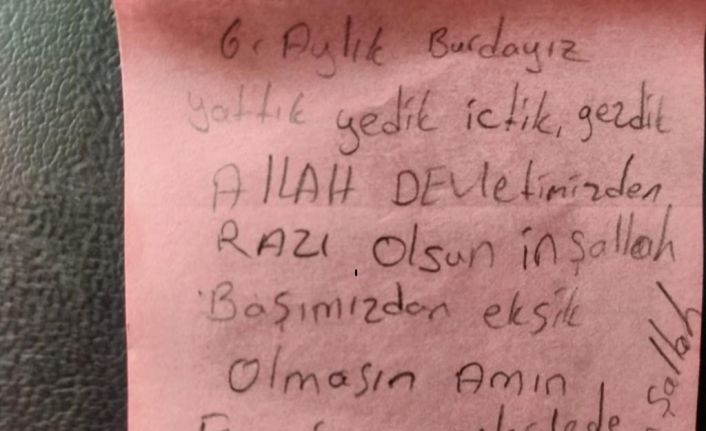 6. Aylık Burdayız
yattık yedik içtik, gezdik
AllAH DEVletimizden
RAZI Olsun inşallah
Başımızdan eksik
Olmasın Amin
şallah